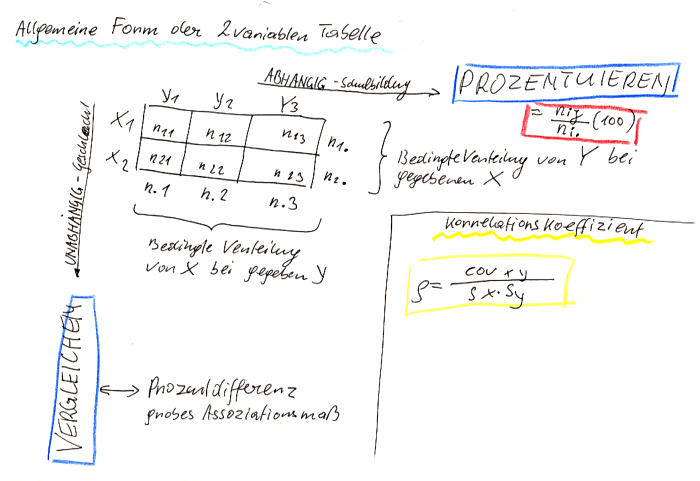 Allgemeine Form der 2 variablen Tabelle
ABHÄNGIG - Schulbildung
PROZENTUIEREN
= nij / ni. (100)
y1 y2 Y3
X1 n11 n12 n13 n1.
X2 n21 n22 n23 n2.
n.1 n.2 n.3
UNABHÄNGIG - Geschlecht
Bedingte Verteilung von Y bei
gegebenen X
Bedingte Verteilung
von X bei gegeben Y
Korrelationskoeffizient
ρ = cov xy / Sx · Sy
VERGLEICHEN
↔ Prozentdifferenz
grobes Assoziationsmaß